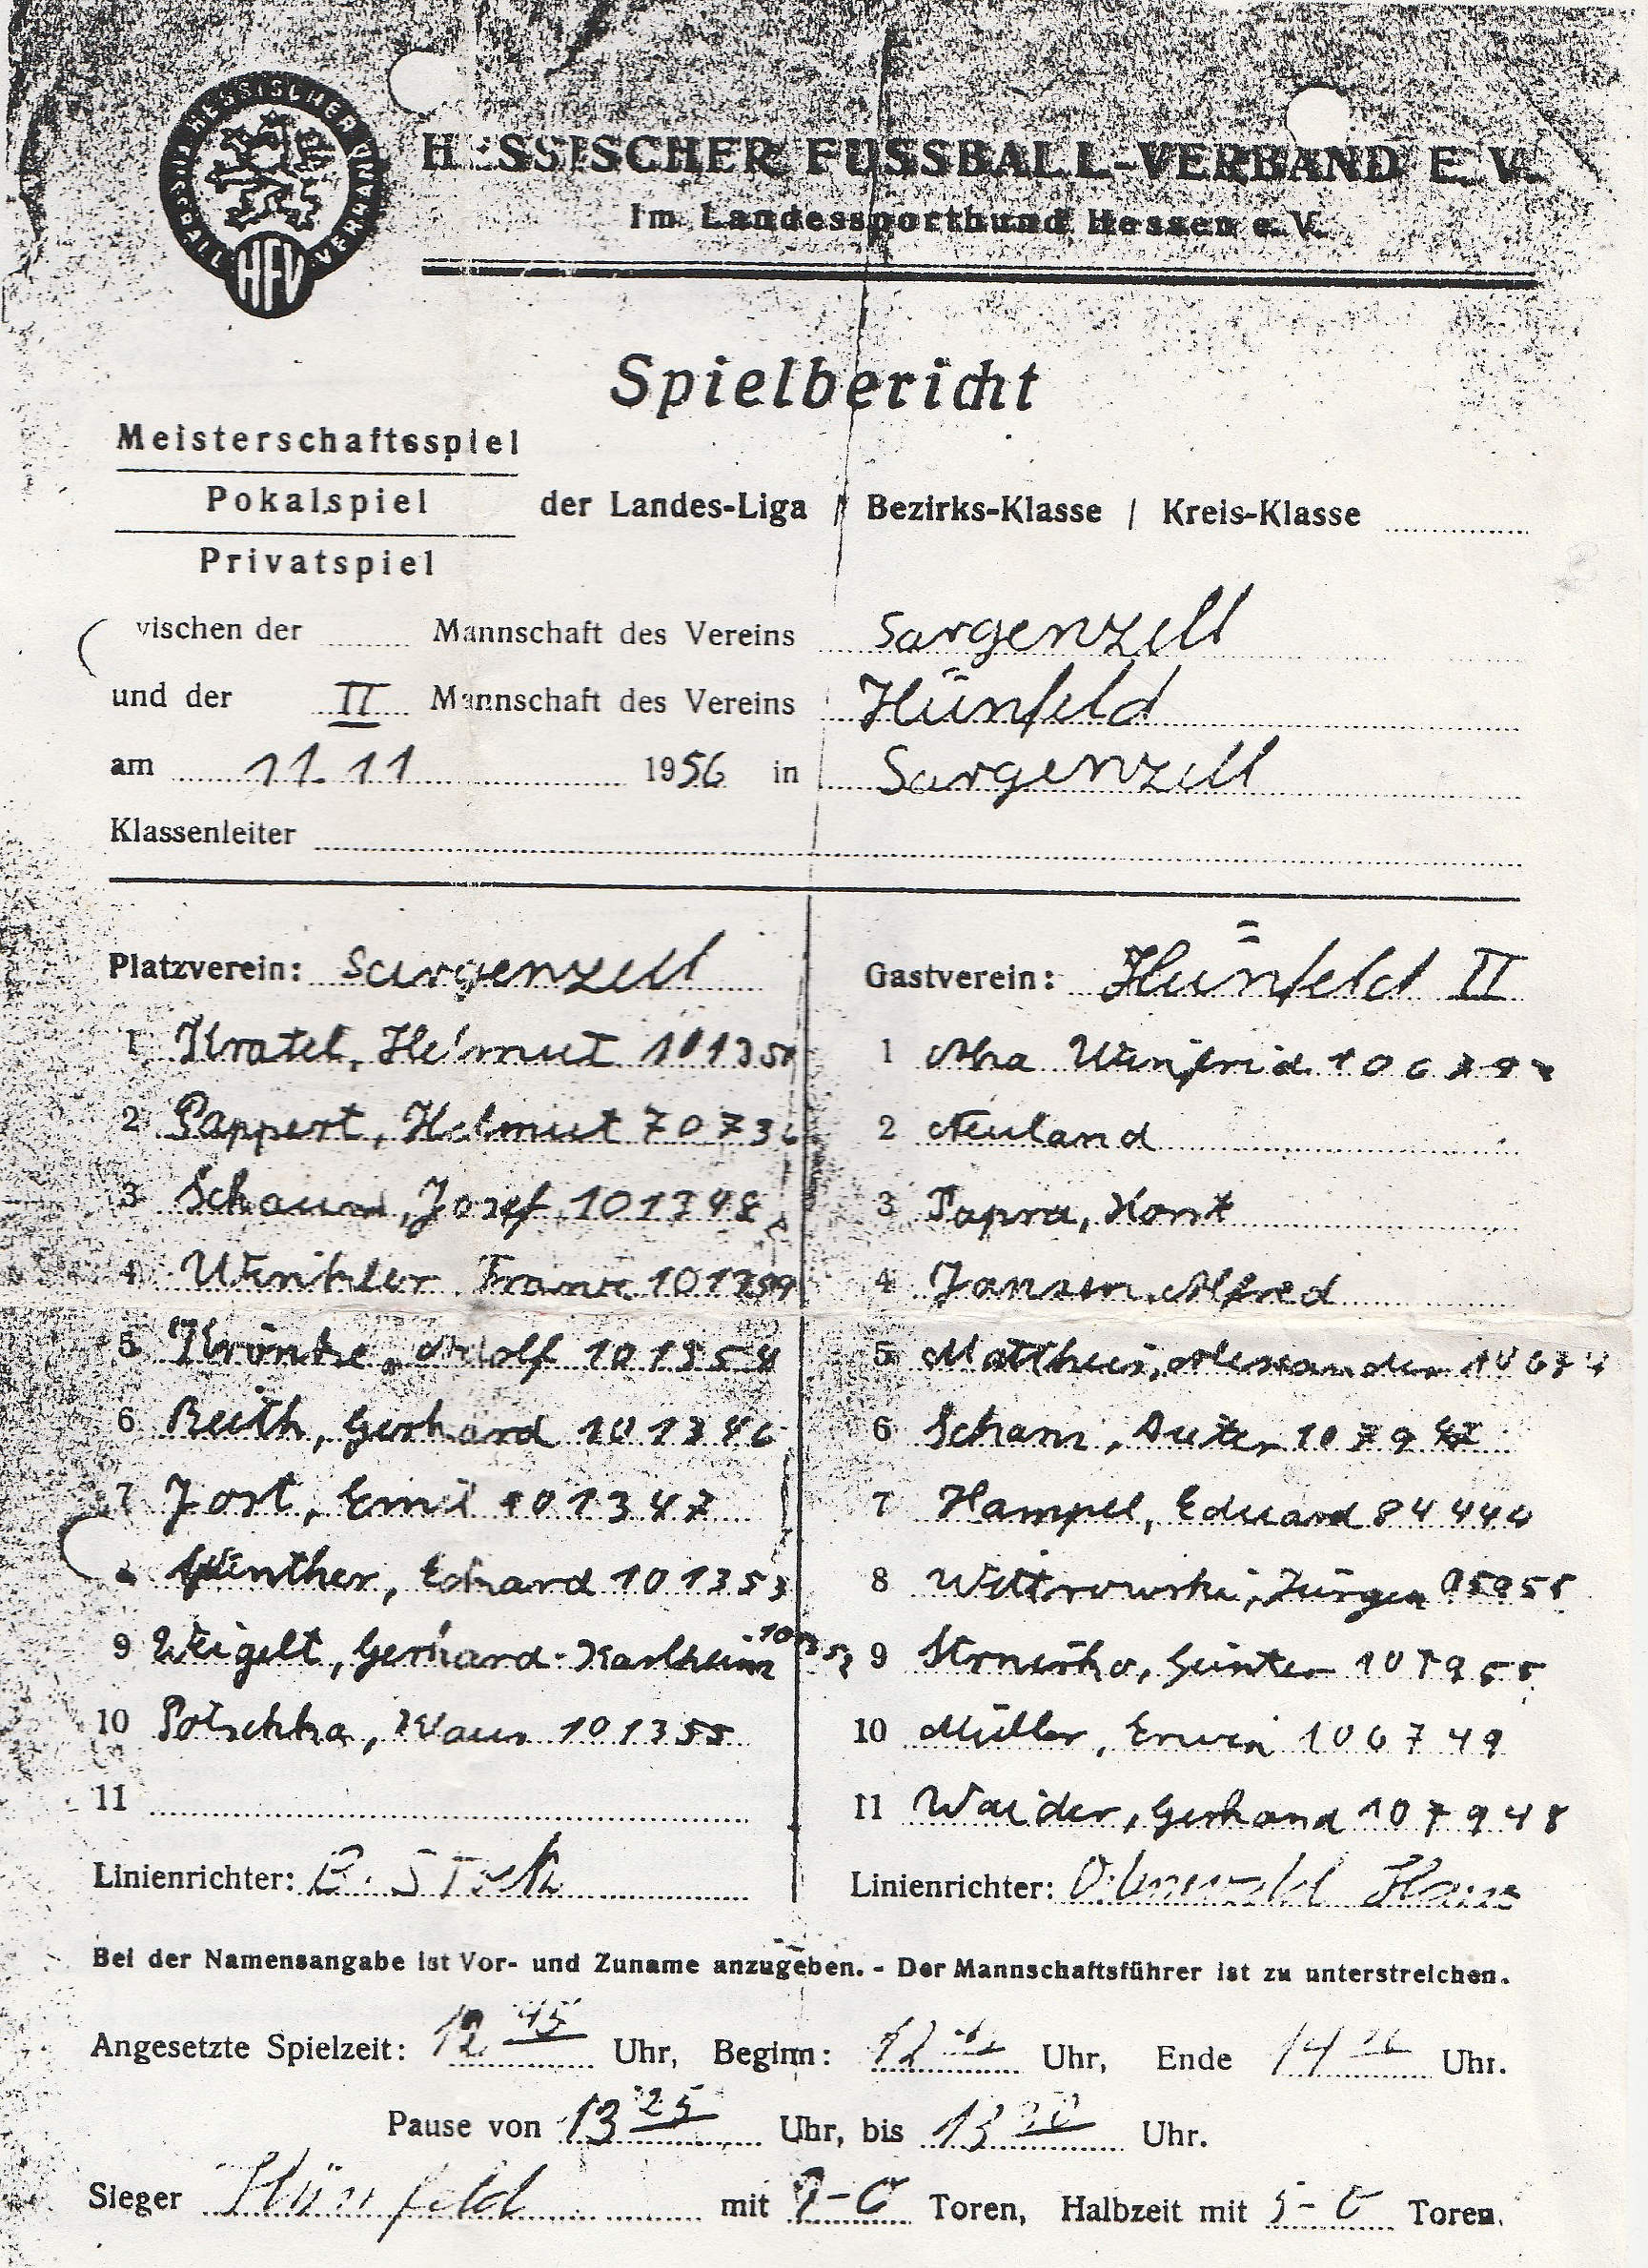 HESSISCHER FUSSBALL-VERBAND
HFV
HESSISCHER FUSSBALL-VERBAND E.V.
Im Landessportbund Hessen e.V.
Spielbericht
Meisterschaftsspiel
Pokalspiel der Landes-Liga / Bezirks-Klasse / Kreis-Klasse
Privatspiel
wischen der Mannschaft des Vereins Sargenzell
und der II Mannschaft des Vereins Hünfeld
am 11.11 1956 in Sargenzell
Klassenleiter
Platzverein: Sargenzell
1 Kratel, Helmut
2 Pappert, Helmut
3 Schaum, Josef 101348
4 Winkler Franz
5 Adolf 101354
6 Reith, Gerhard 101346
7 Jost, Emil 101347
Günther, Eduard 101353
9 Weigelt, Gerhard-Karlheinz
10 Potschka, Klaus 101355
11
Linienrichter:
Gastverein: Hünfeld II
1 Winfrid
2 Neuland
3 Papra, Horst
4 Jansen, Alfred
5 Matthes, Alexander
6 Dieter
7 Hampel, Eduard 84440
8 Jürgen
9 Günter
10 Müller, Erwin 106749
11 Waider, Gerhard 107948
Linienrichter: Hans
Bei der Namensangabe ist Vor- und Zuname anzugeben. - Der Mannschaftsführer ist zu unterstreichen.
Angesetzte Spielzeit: 12 45 Uhr, Beginn: 12 Uhr, Ende 14 Uhr.
Pause von 13 25 Uhr, bis 13 Uhr.
Sieger Hünfeld mit 9-0 Toren, Halbzeit mit 5-0 Toren.